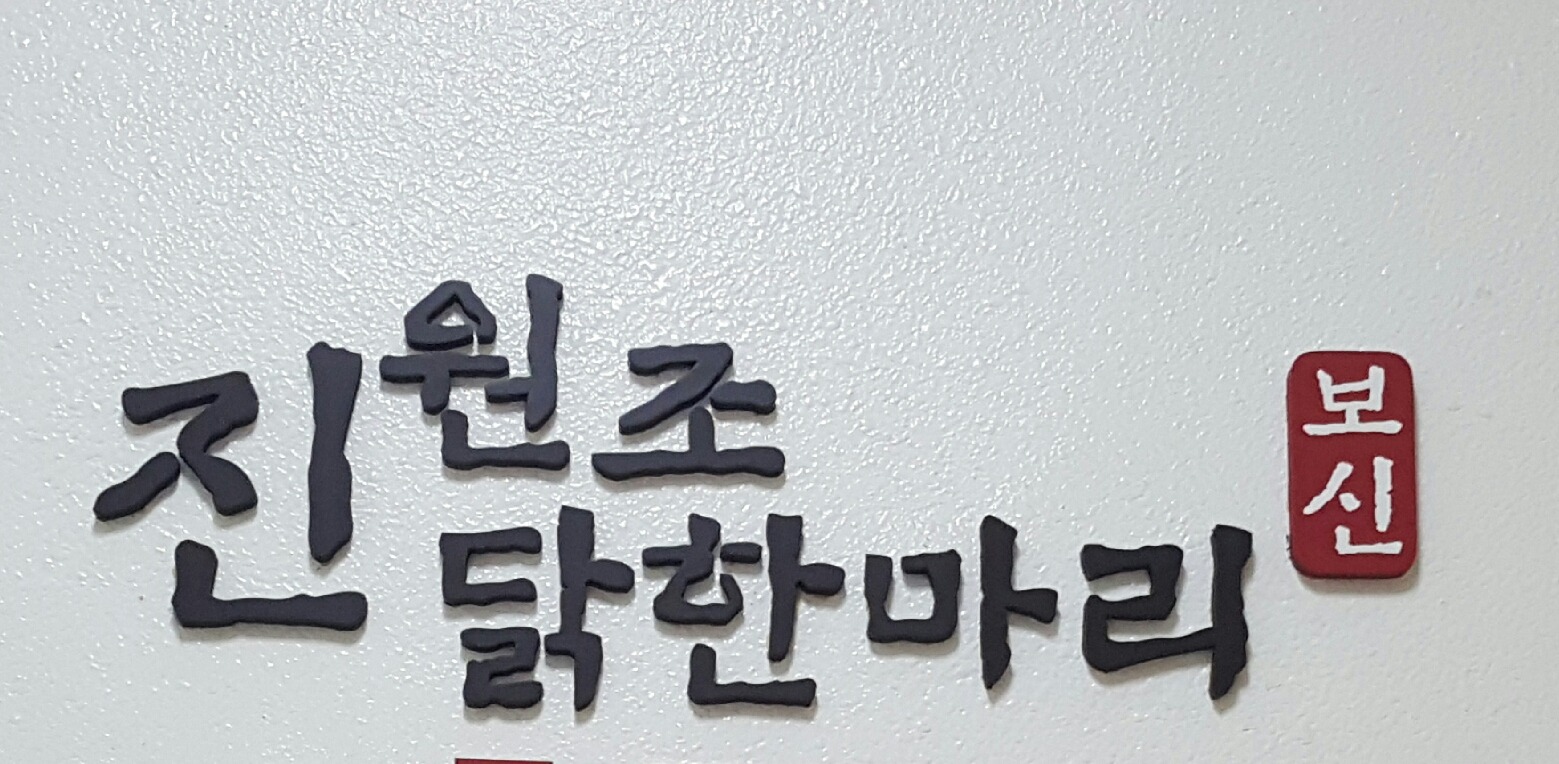 진원조
닭한마리
보신